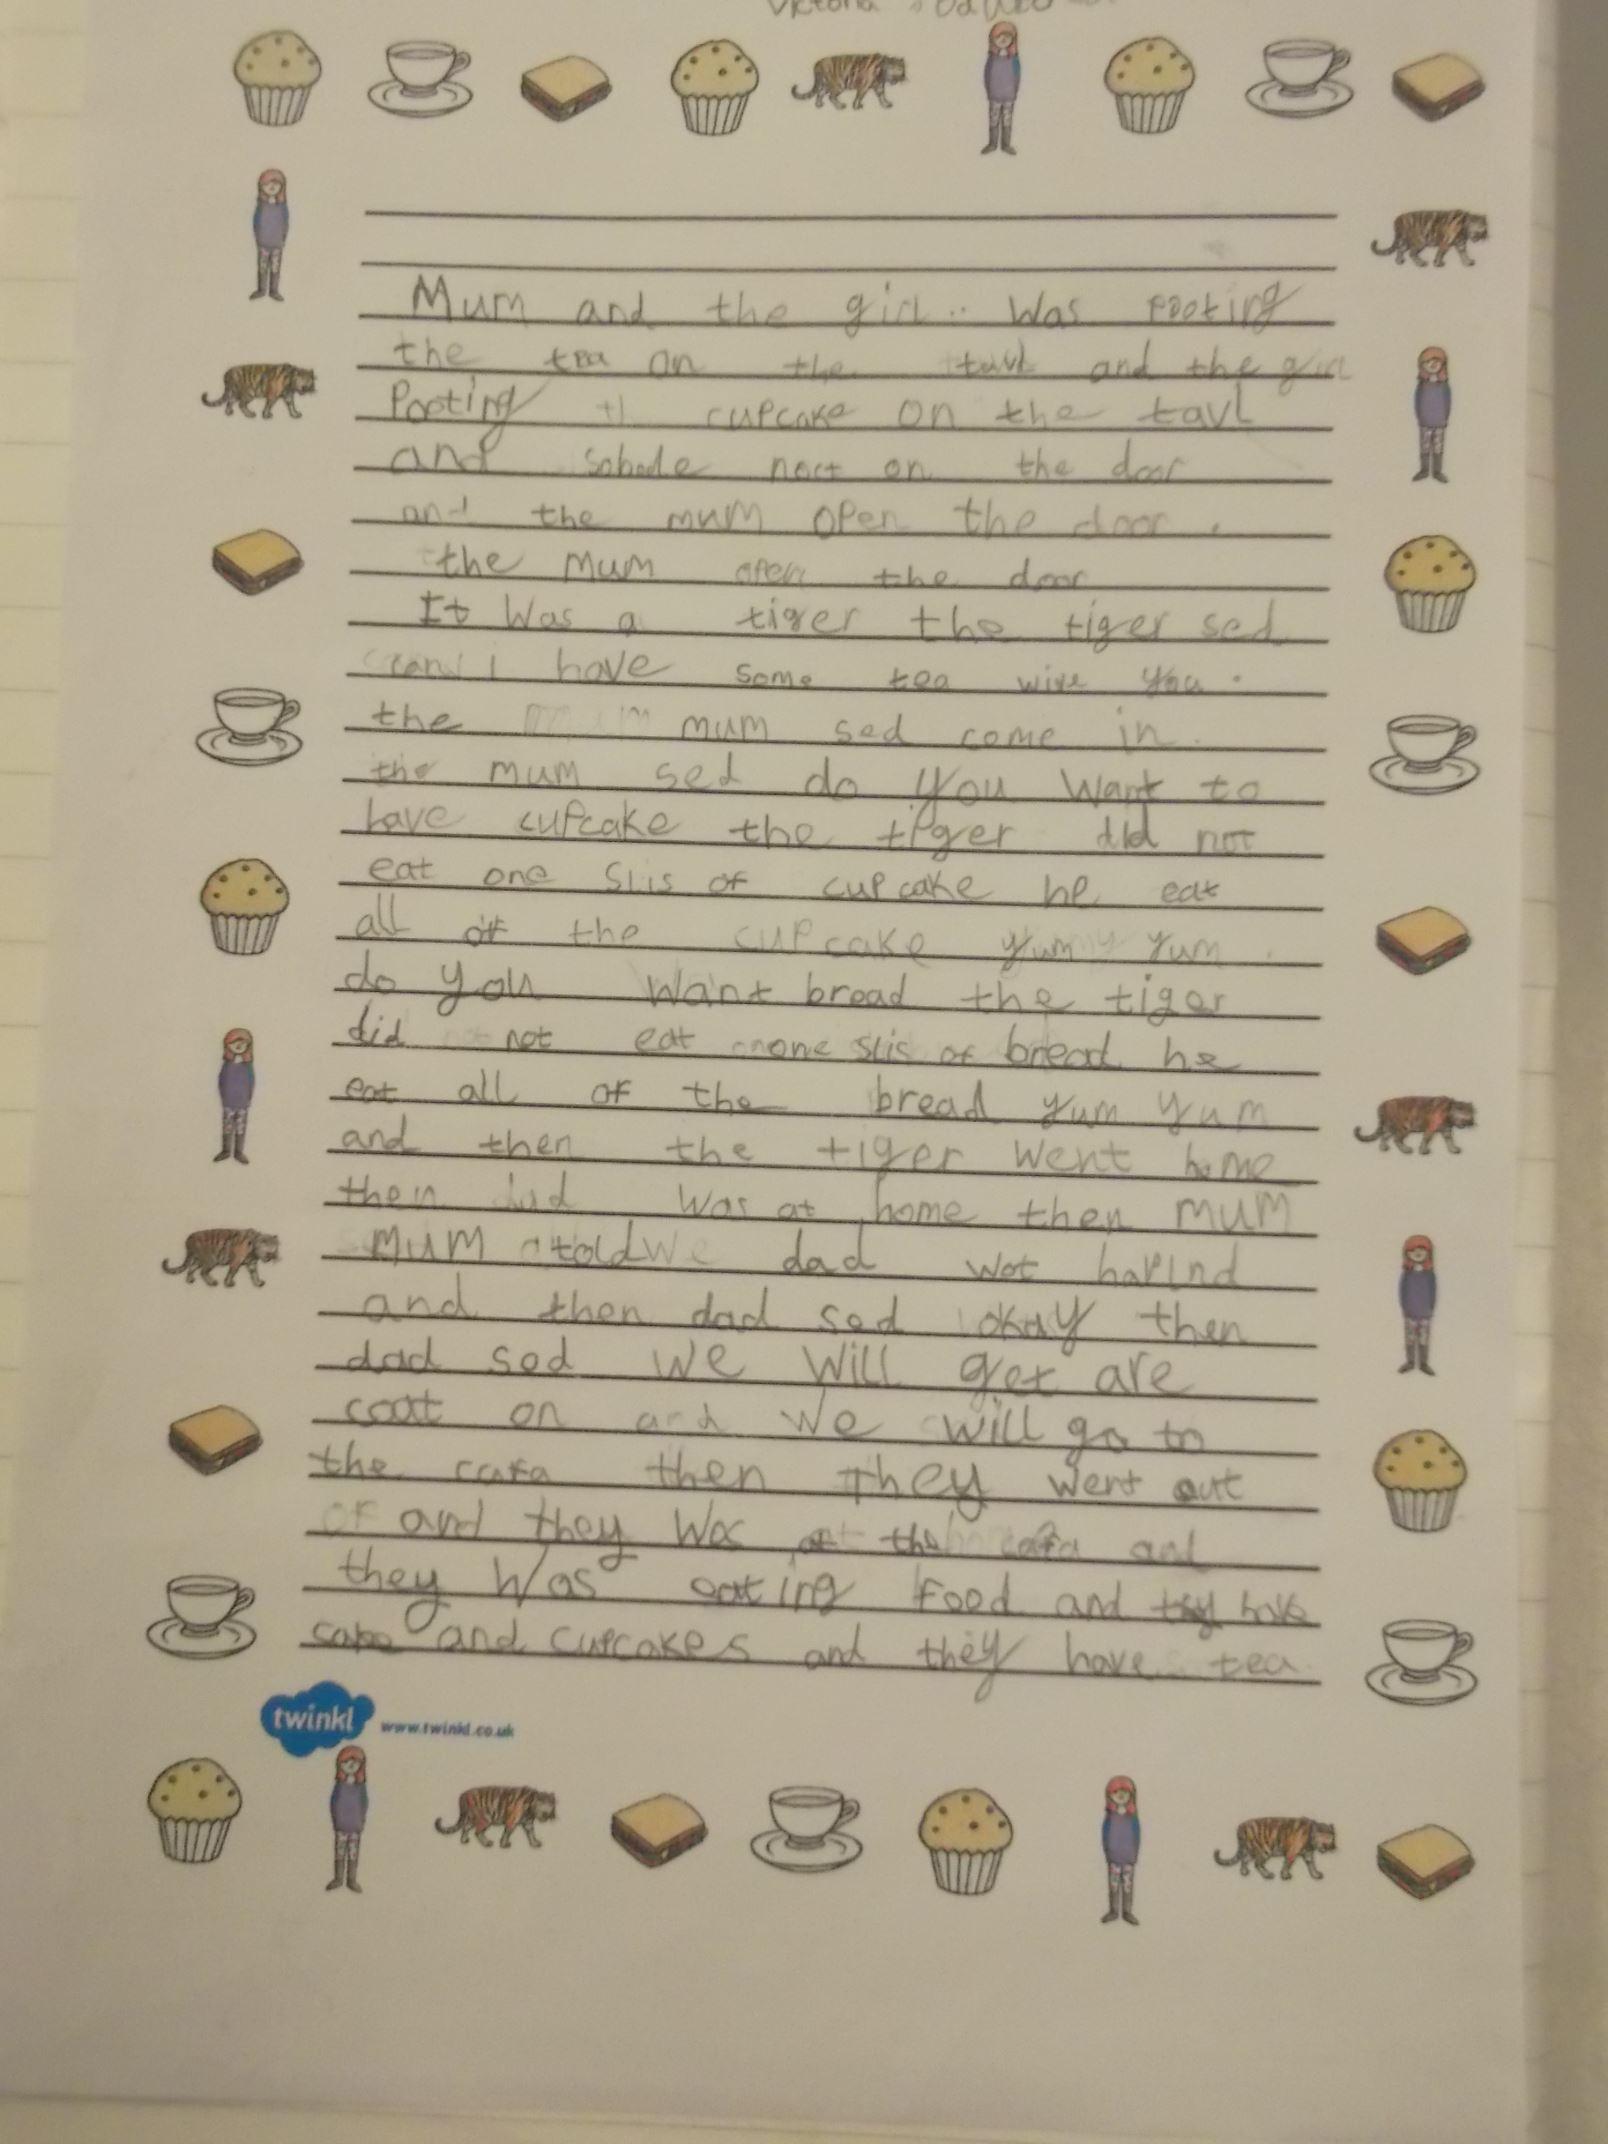 Victoria
Mum and the girl.. Was pooting
the tea on the tavl and the girl
Pooting th cupcake on the tavl
and sobode noct on the door
and the mum open the door.
the mum open the door
It Was a tiger the tiger sed
can i have some tea wive you.
the mum sed come in.
the mum sed do you want to
have cupcake the tiger did not
eat one slis of cupcake he eat
all of the cupcake yummy yum.
do you want bread the tiger
did not eat one slis of bread he
eat all of the bread yum yum
and then the tiger went home
then dad was at home then mum
mum told dad wot hapind
and then dad sed okay then
dad sed we will get are
coat on and we will go to
the cafa then They went out
of and they Was at the cafa and
they Was eating Food and they have
and cupcakes and they have tea
twinkl www.twinkl.co.uk